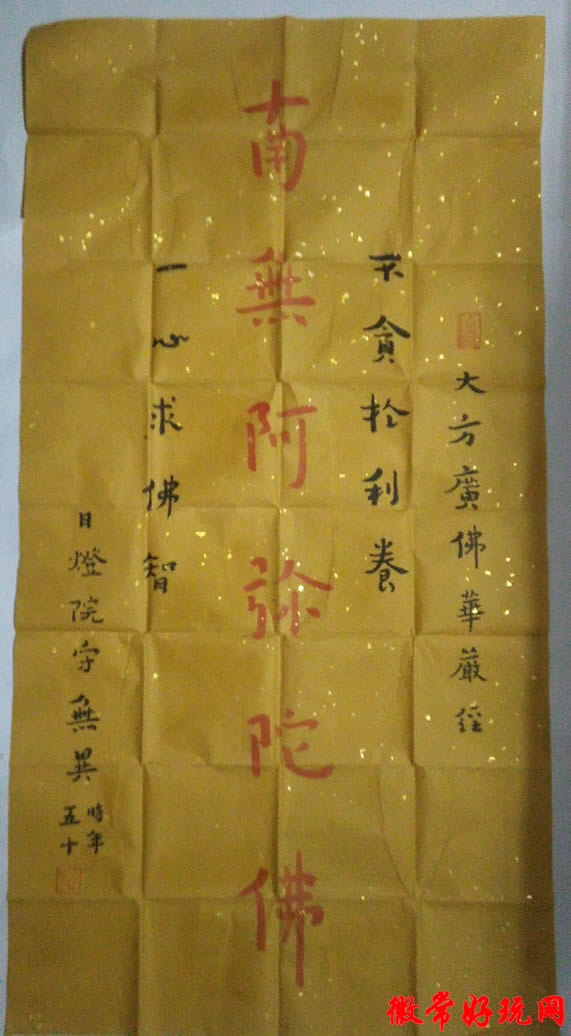 大方廣佛華嚴經
不貪於利養
南無阿弥陀佛
一心求佛智
日燈院守無異
時年
五十
徽常好玩网